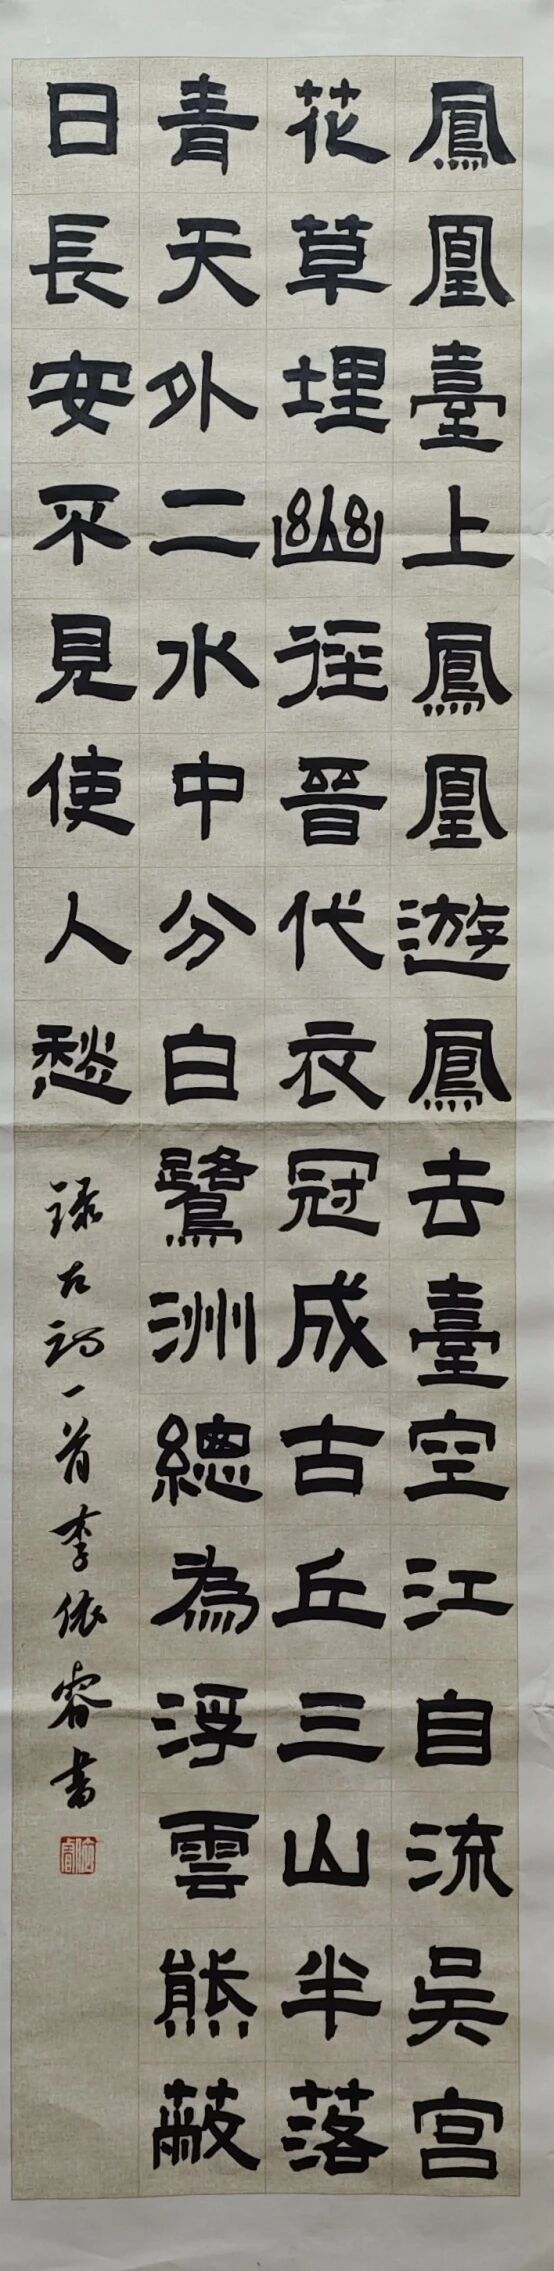 鳳凰臺上鳳凰遊鳳去臺空江自流吴宫
花草埋幽徑晉代衣冠成古丘三山半落
青天外二水中分白鷺洲總為浮雲熊蔽
日長安不見使人愁
録古詞一首李依睿書